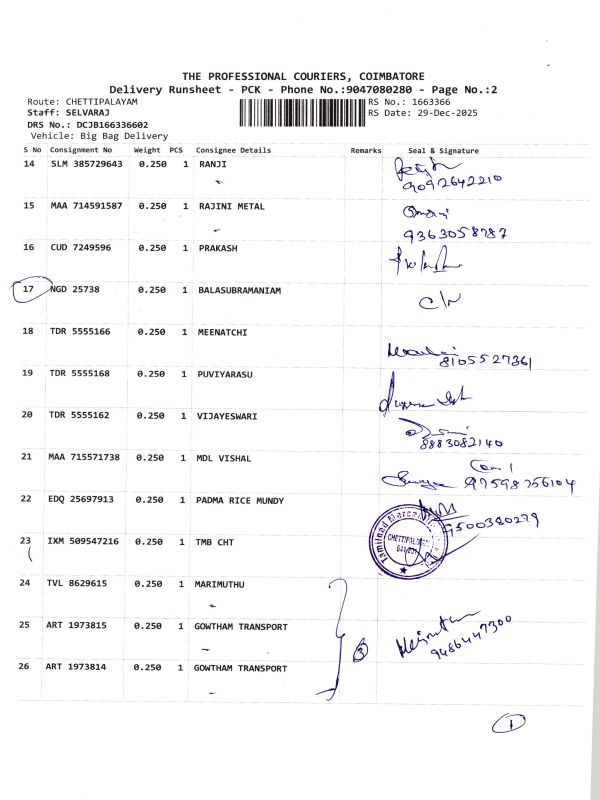 THE PROFESSIONAL COURIERS, COIMBATORE
Delivery Runsheet - PCK - Phone No.:9047080280 - Page No.:2
Route: CHETTIPALAYAM RS No.: 1663366
Staff: SELVARAJ RS Date: 29-Dec-2025
DRS No.: DCJB166336602
Vehicle: Big Bag Delivery
S No Consignment No Weight PCS Consignee Details Remarks Seal & Signature
14 SLM 385729643 0.250 1 RANJI
9092642210
15 MAA 714591587 0.250 1 RAJINI METAL
9363058787
16 CUD 7249596 0.250 1 PRAKASH
17 NGD 25738 0.250 1 BALASUBRAMANIAM
18 TDR 5555166 0.250 1 MEENATCHI
8105527361
19 TDR 5555168 0.250 1 PUVIYARASU
20 TDR 5555162 0.250 1 VIJAYESWARI
8883082140
21 MAA 715571738 0.250 1 MDL VISHAL
97598756104
22 EDQ 25697913 0.250 1 PADMA RICE MUNDY
9500380279
23 IXM 509547216 0.250 1 TMB CHT
CHETTIPALAYAM
24 TVL 8629615 0.250 1 MARIMUTHU
25 ART 1973815 0.250 1 GOWTHAM TRANSPORT
3
9486447300
26 ART 1973814 0.250 1 GOWTHAM TRANSPORT
1